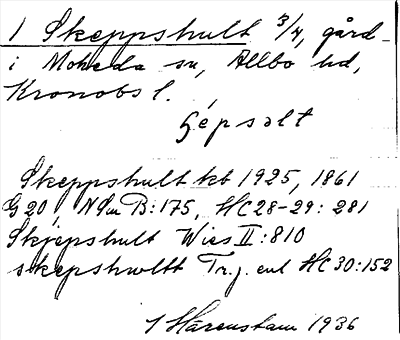 1 Skeppshult 3/4, gård
i Moheda sn, Allbo hd,
Kronobs l.
Skeppshult kt 1925, 1861
G 20, NSm B:175, HC 28-29: 281
Skjepshult Wies II:810
skepshwltt Tr.j. enl HC 30:152
1936